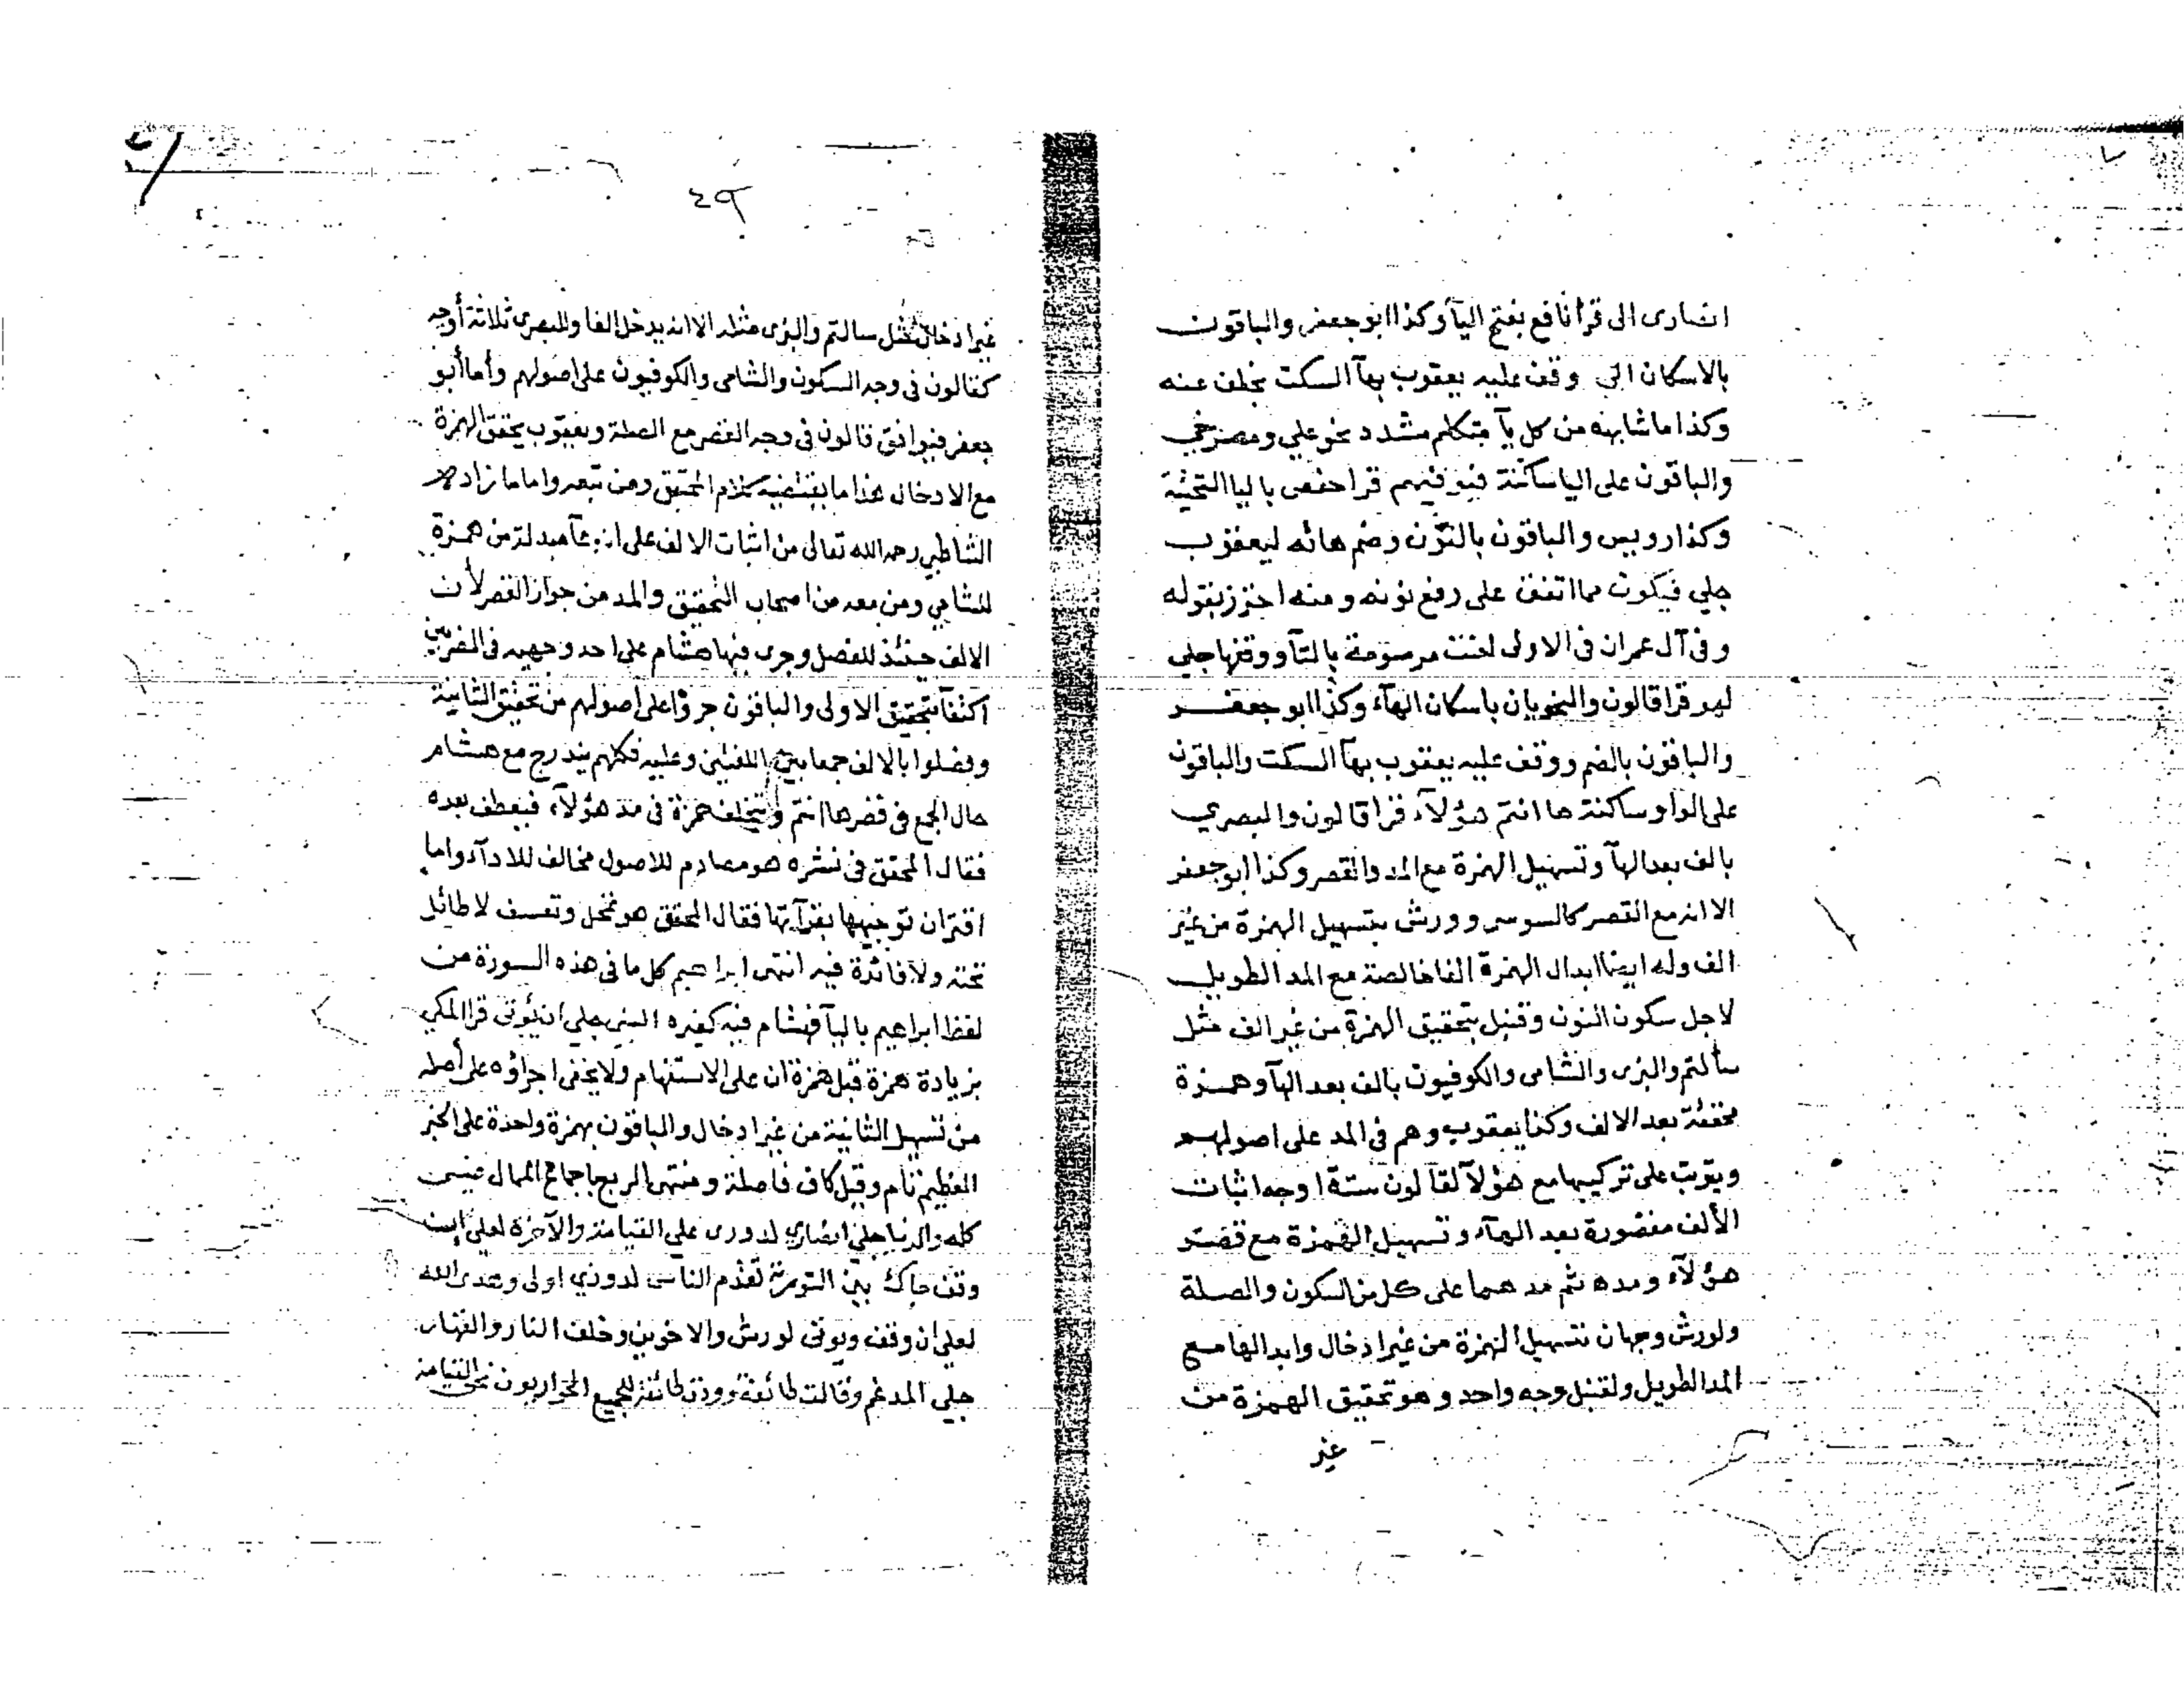 انصارى الى قرأ نافع بفتح اليآ وكذا ابو جعفر والباقون
بالاسكان الي وقف عليه يعقوب بهآ السكت بخلف عنه
وكذا ما شابهه من كل يآ متكلم مشدد نحو علي ومصرخي
والباقون على اليا ساكنة فيوفيهم قرا حفص باليا التحتية
وكذا رويس والباقون بالنون وضم هائه ليعقوب
جلي فيكون مما اتفق على رفع نونه ومنه احترز بقوله
وفى آل عمران فى الاولى لعنت مرسومة بالتآ ووقفها جلي
لهو قرا قالون والنحويان باسكان الهآء وكذا ابو جعفر
والباقون بالضم ووقف عليه يعقوب بهآ السكت والباقون
على الواو ساكنة ها انتم هؤلآء قرا قالون والبصري
بالف بعد الهآ وتسهيل الهمزة مع المد والقصر وكذا ابو جعفر
الا انه مع القصر كالسوسى وورش بتسهيل الهمزة من غير
الف وله ايضا ابدال الهمزة الفا خالصة مع المد الطويل
لاجل سكون النون وقنبل بتحقيق الهمزة من غير الف مثل
سألتم والبزى والشامى والكوفيون بالف بعد الهآ وهمزة
محققة بعد الالف وكذا يعقوب وهم فى المد على اصولهم
ويترتب على تركيبها مع هؤلآ لقالون ستة اوجه اثبات
الألف مقصورة بعد الهآء وتسهيل الهمزة مع قصر
هؤلآء ومده ثم مدهما على كل من السكون والصلة
ولورش وجهان تسهيل الهمزة من غير ادخال وابدالها مع
المد الطويل ولقنبل وجه واحد وهو تحقيق الهمزة من
غير
٤٩
غير ادخال مثل سالتم والبزى مثله الا انه يدخل الفا وللبصرى ثلاثة أوجه
كقالون فى وجه السكون والشامى والكوفيون على اصولهم وأما أبو
جعفر فيوافق قالون فى وجه القصر مع الصلة ويعقوب يحقق الهمزة
مع الادخال هذا ما يقتضيه كلام المحقق ومن تبعه واما ما زاده
الشاطبي رحمه الله تعالى من اثبات الالف على ان هآ مبدلة من همزة
للشامي ومن معه من اصحاب التحقيق والمد من جواز القصر لأن
الالف حينئذ للفصل وجرى فيها هشام على احد وجهيه فى الضربين
اكتفآ بتحقيق الاولى والباقون جروا على اصولهم من تحقيق الثانية
وفصلوا بالالف جمعا بين اللغتين وعليه فكلهم يندرج مع هشام
حال الجمع فى قصرها انتم ويتخلف حمزة فى مد هؤلآء فيعطف بعده
فقال المحقق فى نشره هو مصادم للاصول مخالف للادآء واما
اقتران توجيهها بقرآتها فقال المحقق هو تمحل وتعسف لا طائل
تحته ولا فائدة فيه انتهى ابراهيم كل ما فى هذه السورة من
لفظ ابراهيم باليآ فهشام فيه كغيره النبي جلي ان يؤتى قرا المكي
بزيادة همزة قبل همزة ان على الاستفهام ولا يخفى اجراؤه على أصله
من تسهيل الثانية من غير ادخال والباقون بهمزة واحدة على الخبر
العظيم تام وقيل كاف فاصلة ومنتهى الربع باجماع الممال عيسى
كله والدنيا جلي انصاري لدورى علي القيامة والآخرة لعلي ان
وقف جاك بين التورية تقدم الناس لدوري اولى وهدى الله
لعلي ان وقف ويؤتى لورش والاخوين وخلف النار والنهار
جلي المدغم وقالت طائفة وودت طائفة للجميع الحواريون نحن القيامة